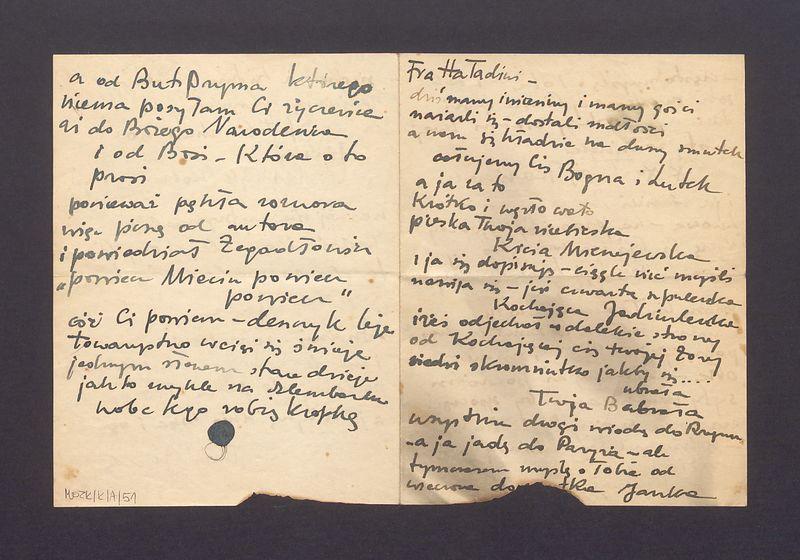 a od Buti Pryma którego
niema posyłam Ci życzenia
aż do Bożego Narodzenia
i od Bosi – Która o to
prosi
ponieważ pękła rozmowa
więc piszę od autora
i powiedział Zegadłowicz
„powiem Mieciu powiem
powiem"
cóż Ci powiem – deszczyk leje
towarzystwo wciąż się śmieje
jednym słowem stare dzieje
jak to zwykle na
wobec tego robię kropkę
MOZK/K/A/51
Fra Ha Tadziu –
dziś mamy imieniny i mamy gości
najarli się – dostali mdłości
a nam się kładzie na duszy smutek
całujemy Cię Bogna i Lutek
a ja za to
Krótko i węzłowato
pieska Twoja niebieska
Kicia
i ja się dopisuję – ciągle nić myśli
nawija się – już czwarta szpuleczka
Kochająca
iżeś odjechał w dalekie strony
od Kochającej cię twojej żony
siedzi skromniutko jakby się ....
ubrała
Twoja Babrała
wszystkie drogi wiodą do Rzymu
– a ja jadę do Paryża – ale
tymczasem myślę o Tobie od
wieczora do Janka